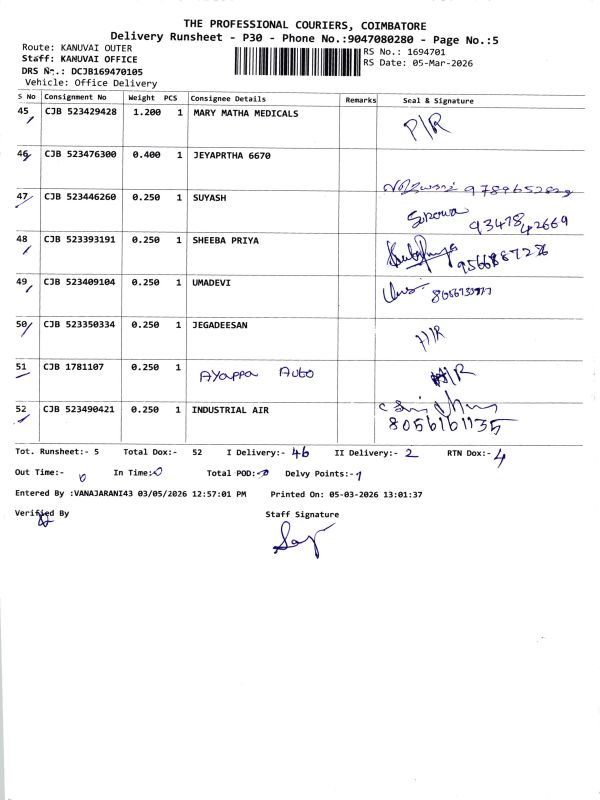 THE PROFESSIONAL COURIERS, COIMBATORE
Delivery Runsheet - P30 - Phone No.:9047080280 - Page No.:5
Route: KANUVAI OUTER
RS No.: 1694701
Staff: KANUVAI OFFICE
RS Date: 05-Mar-2026
DRS No.: DCJB169470105
Vehicle: Office Delivery
S No Consignment No Weight PCS Consignee Details Remarks Seal & Signature
45 CJB 523429428 1.200 1 MARY MATHA MEDICALS P/R
46 CJB 523476300 0.400 1 JEYAPRTHA 6670
47 CJB 523446260 0.250 1 SUYASH 93478 42669
48 CJB 523393191 0.250 1 SHEEBA PRIYA
49 CJB 523409104 0.250 1 UMADEVI
50 CJB 523350334 0.250 1 JEGADEESAN
51 CJB 1781107 0.250 1 Ayappa Auto
52 CJB 523490421 0.250 1 INDUSTRIAL AIR 8056161135
Tot. Runsheet:- 5 Total Dox:- 52 I Delivery:- 46 II Delivery:- 2 RTN Dox:- 4
Out Time:- 0 In Time:-0 Total POD:-0 Delvy Points:-1
Entered By :VANAJARANI43 03/05/2026 12:57:01 PM Printed On: 05-03-2026 13:01:37
Verified By Staff Signature